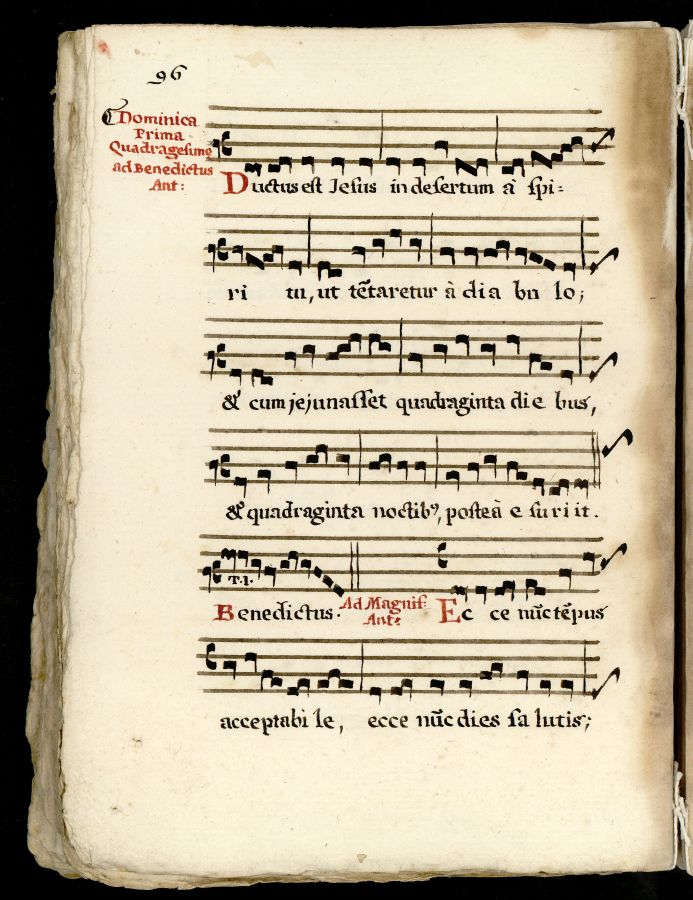 96
Dominica
Prima
Quadragesime
ad Benedictus
Ant:
Ductus est Jesus in desertum à spi=
ri tu, ut tẽtaretur à dia bu lo;
& cum jejunasset quadraginta die bus,
& quadraginta noctibꝰ, posteà e su ri it.
T.1.
Benedictus. Ad Magnif: Ec ce nũc tẽpus
Ant:
acceptabi le, ecce nũc dies sa lutis;